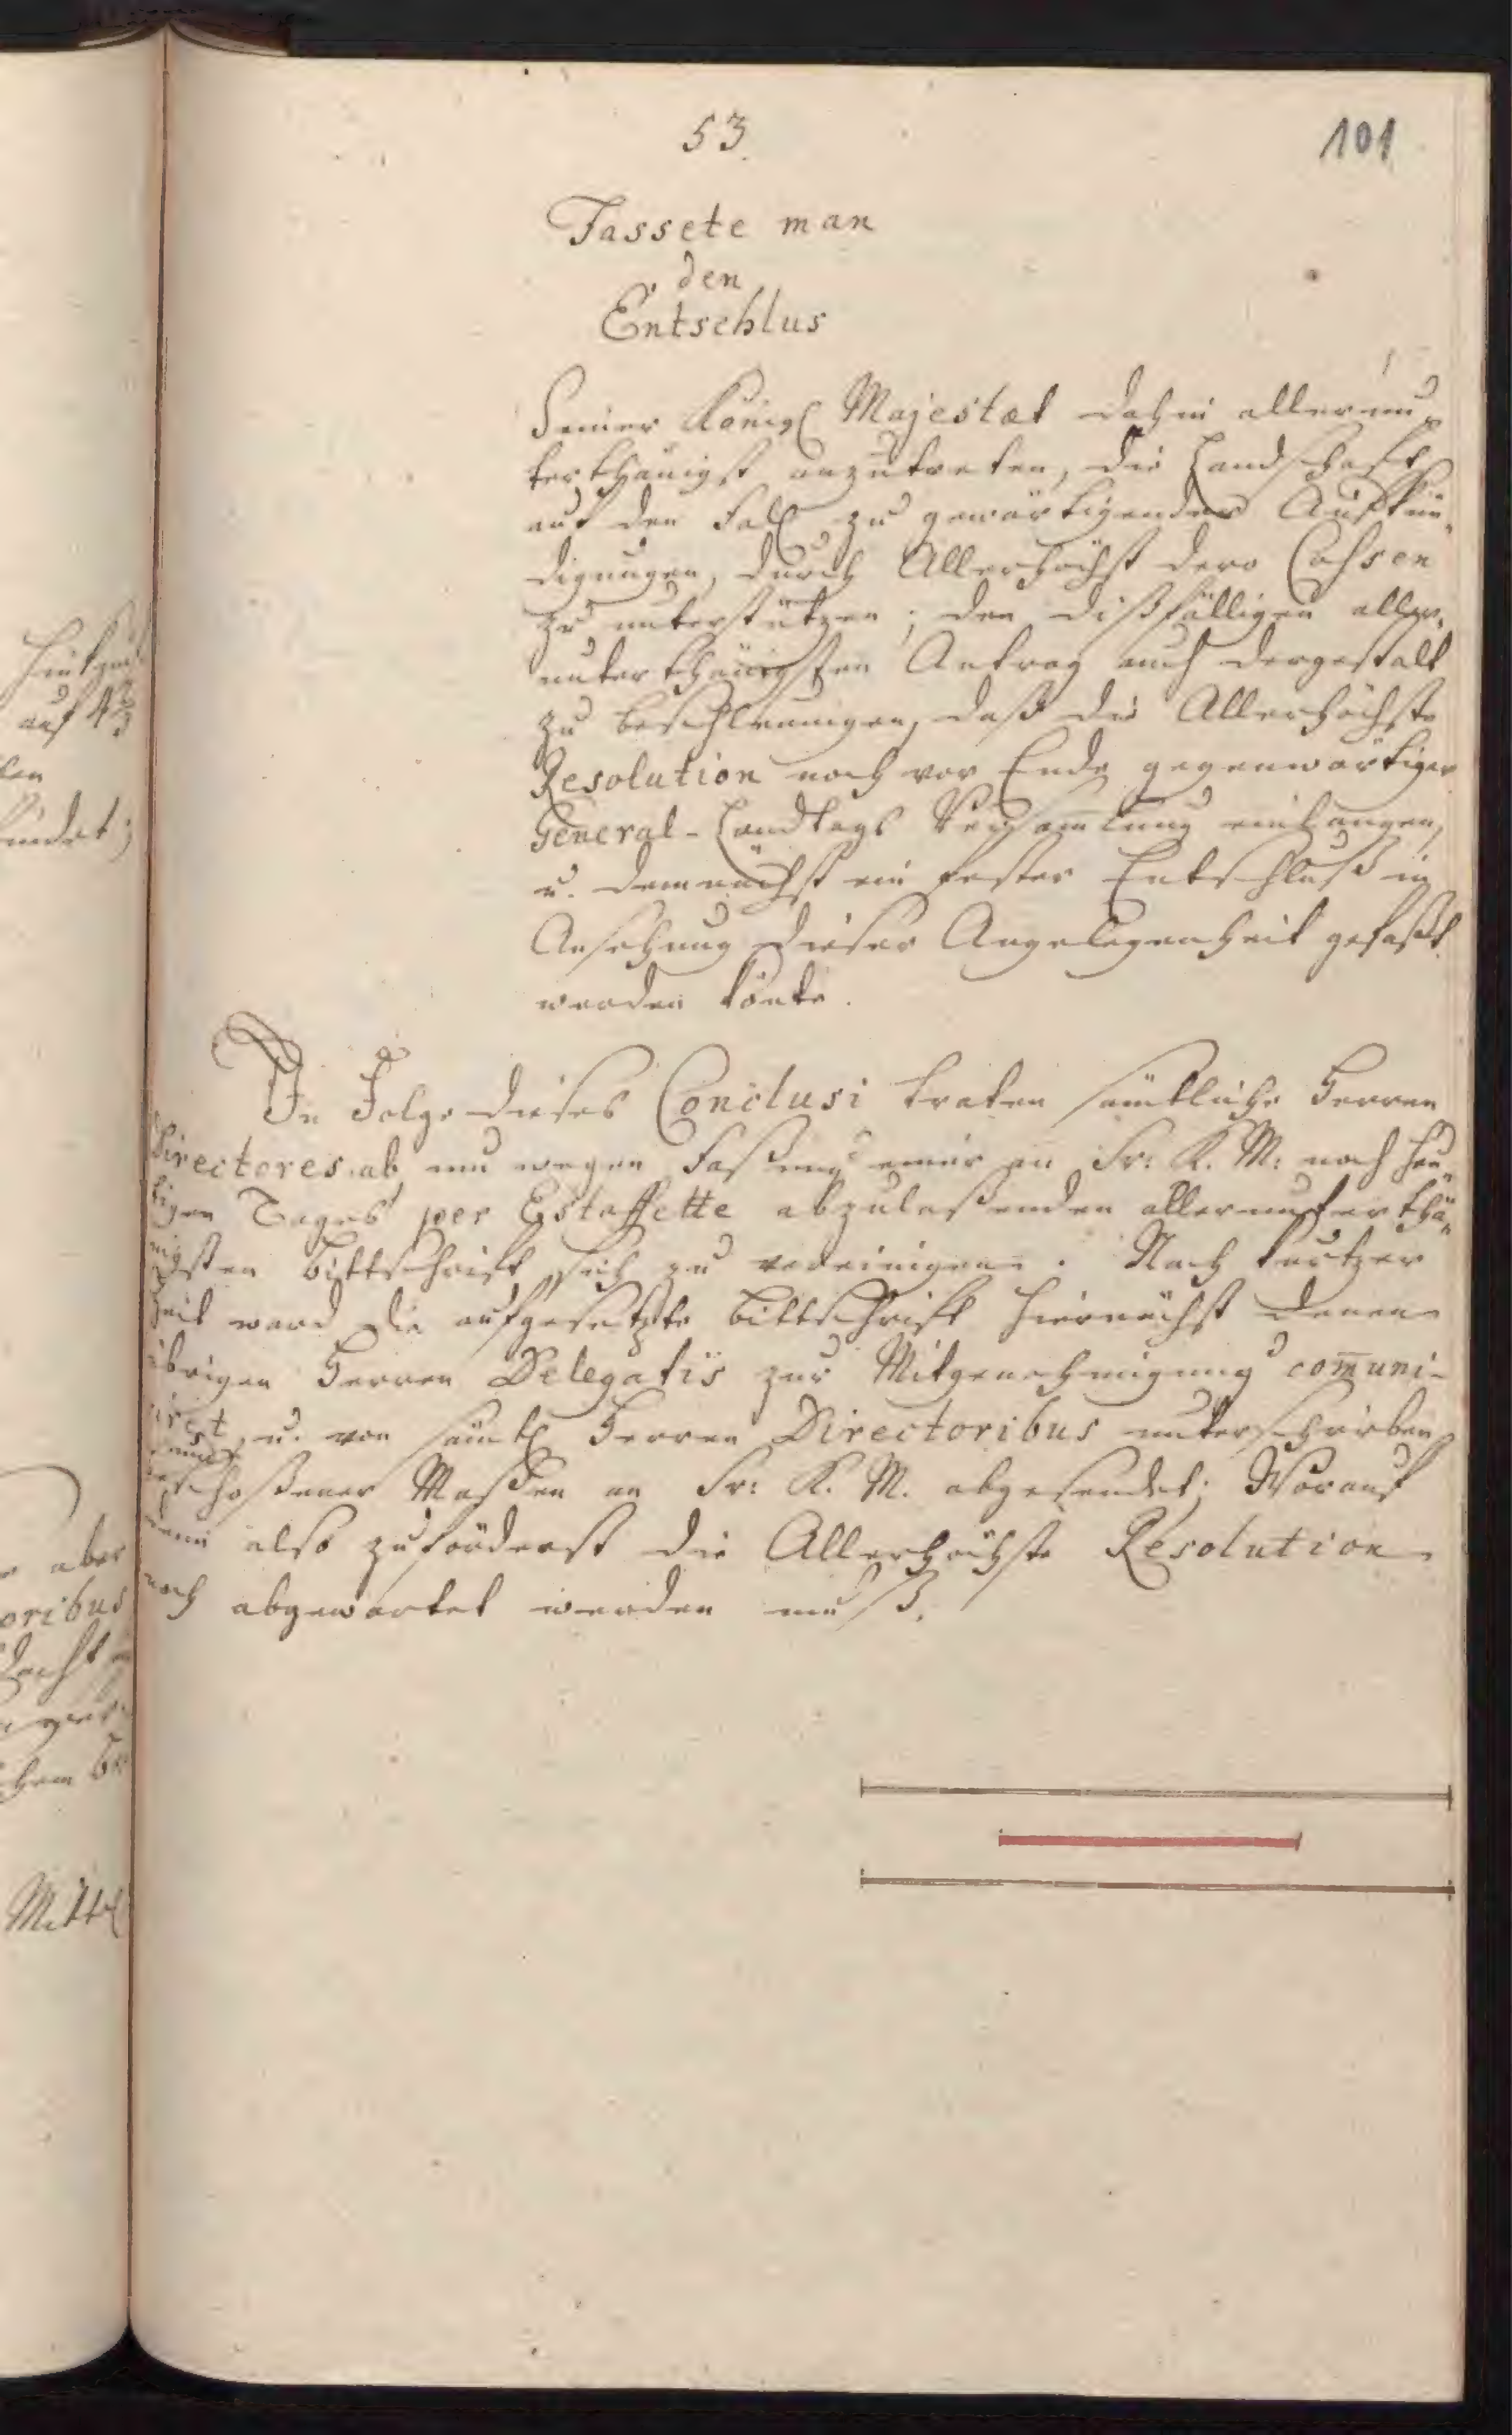 53.
101
Fassete man
den
Entschlus
Seiner Königl Majestæt dahin allerun-
terthänigst anzutreten, die Landschaft
auf den Fall zu gewärtigender Aufkün-
digungen, durch Allerhöchst dero Cassen
zu unterstützen; den dißfälligen aller-
unterthänigsten Antrag auch dergestalt
zu beschleunigen, daß die Allerhöchste
Resolution noch vor Ende gegenwärtiger
General-Landtags Versam̅lung einlangen,
u. demnächst ein fester Entschluß in
Ansehung dieser Angelegenheit gefaßt
werden könte.
In Folge dieses Conclusi traten sämtliche Herren
Directores ab, um wegen Faßung einer an Sr: K. M: noch heu-
tigen Tages per Estaffette abzulaßenden allerunterthä-
nigsten Bittschrift sich zu vereinigen. Nach kurtzer
Zeit ward die aufgesetzte Bittschrift hiernächst denen
übrigen Herren Delegatis zur Mitgenehmigung com̅uni-
cirt, u. von sämtl Herren Directoribus unterschrieben
beschloßener Maßen an Sr: K. M. abgesendet; Worauf
denn also zuförderst die Allerhöchste Resolution
noch abgewartet werden muß.
auf 4⅔
aber
oribus
Mittel